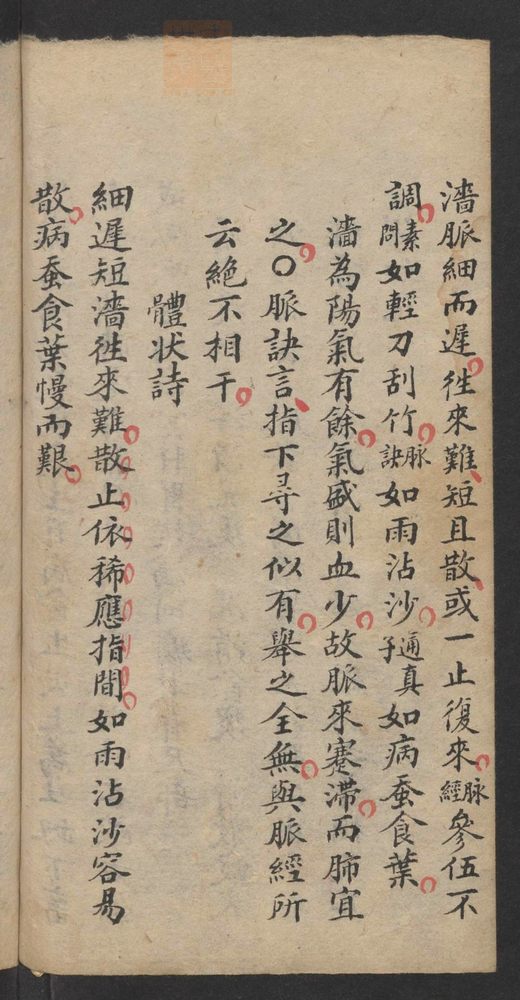 濇脈細而遲徃來難短且散或一止復來脈經參伍不
調素問如輕刀刮竹脈訣如雨沾沙通真子如病蚕食葉
濇為陽氣有餘氣盛則血少故脈來蹇滯而肺宜
之〇脈訣言指下寻之似有舉之全無與脈經所
云絶不相干
體状詩
細遲短濇徃來難散止依稀應指間如雨沾沙容易
散病蚕食葉慢而艱